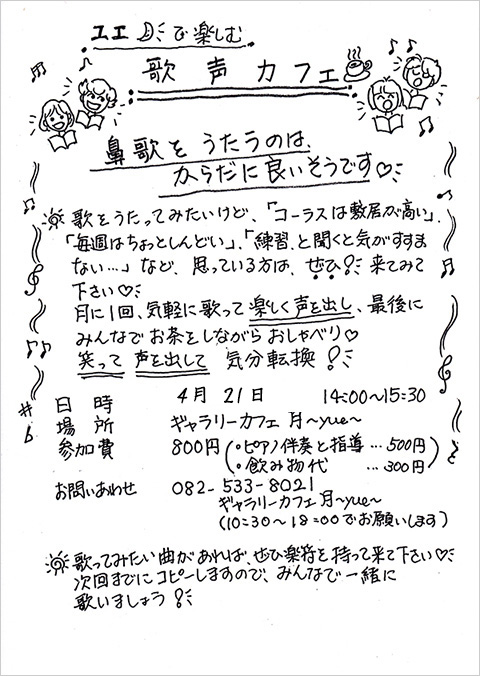 ユエで楽しむ
歌声カフェ
鼻歌をうたうのは、
からだに良いそうです♡
歌をうたってみたいけど、「コーラスは敷居が高い」、
「毎週はちょっとしんどい」、「練習、と聞くと気がすすま
ない…」など、思っている方は、ぜひ!来てみて
下さい♡
月に1回、気軽に歌って楽しく声を出し、最後に
みんなでお茶をしながらおしゃべり♡
笑って声を出して気分転換!
日時 4月21日 14:00〜15:30
場所 ギャラリーカフェ月〜yue〜
参加費 800円(・ピアノ伴奏と指導…500円
・飲み物代 …300円)
お問いあわせ 082-533-8021
ギャラリーカフェ月〜yue〜
(10:30〜18:00でお願いします)
歌ってみたい曲があれば、ぜひ楽符を持って来て下さい♡
次回までにコピーしますので、みんなで一緒に
歌いましょう!